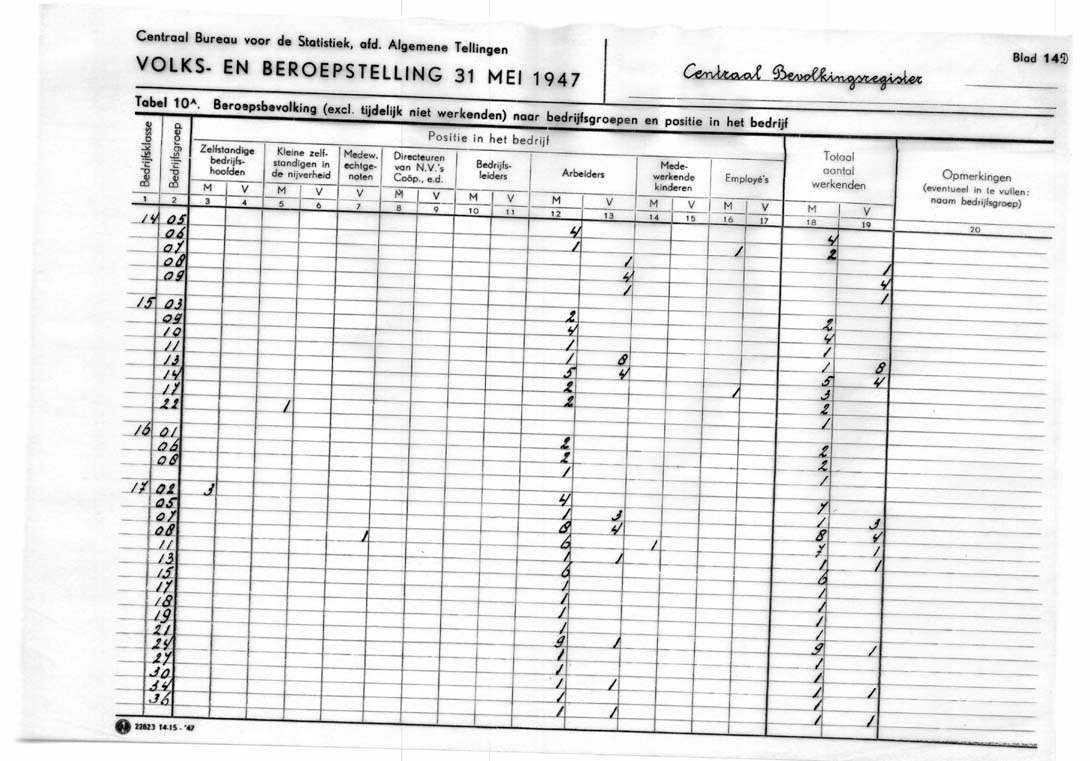 Centraal Bureau voor de Statistiek, afd. Algemene Tellingen
VOLKS- EN BEROEPSTELLING 31 MEI 1947
Centraal Bevolkingsregister
Blad 149
Tabel 10ᴬ. Beroepsbevolking (excl. tijdelijk niet werkenden) naar bedrijfsgroepen en positie in het bedrijf
Bedrijfsklasse
Bedrijfsgroep
Positie in het bedrijf
Zelfstandige
bedrijfs-
hoofden
Kleine zelf-
standigen in
de nijverheid
Medew.
echtge-
noten
Directeuren
van N.V.'s
Coöp., e.d.
Bedrijfs-
leiders
Arbeiders
Mede-
werkende
kinderen
Employé's
Totaal
aantal
werkenden
Opmerkingen
(eventueel in te vullen:
naam bedrijfsgroep)
M V M V V M V M V M V M V M V M V
1 2 3 4 5 6 7 8 9 10 11 12 13 14 15 16 17 18 19 20
14 05 4 4
06 1 1 2
07 1 1
08 4 4
09 1 1
15 03 2 2
09 4 4
10 1 1
11 1 8 1 8
13 5 4 5 4
14 2 1 3
17 2 2
22 1 1
16 01 2 2
06 2 2
08 1 1
17 02 3 4 7
05 1 3 1 3
07 8 4 8 4
08 1 6 1 7 1
11 1 1 1 1
13 6 6
15 1 1
17 1 1
18 1 1
19 1 1
21 9 1 9 1
24 1 1
27 1 1
30 1 1 1 1
34 1 1
36 1 1 1 1
22823 14-15 - '47